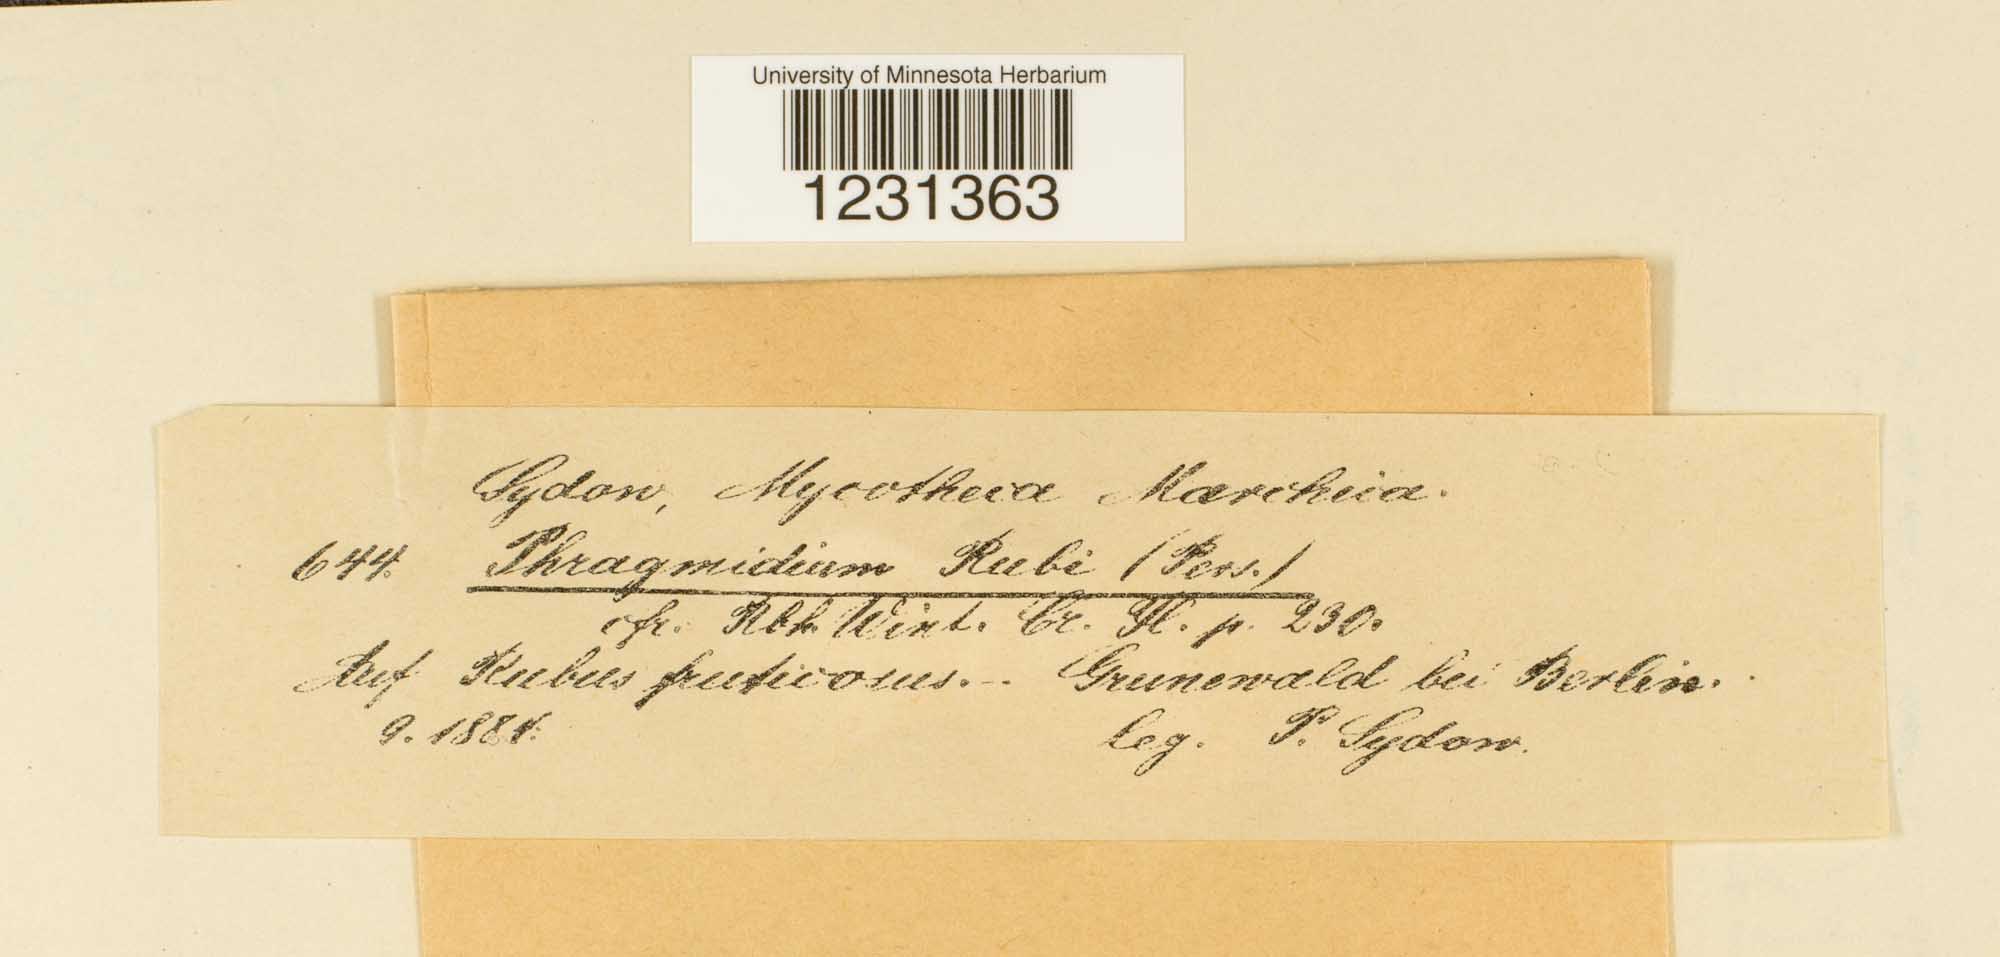 University of Minnesota Herbarium
1231363
Sydow, Mycotheca Marchica.
644. Phragmidium Rubi (Pers.)
cfr. Rbh. Wint. Cr. Fl. p. 230.
Auf Rubus fruticosus. - Grunewald bei Berlin.
9. 1884. leg. P. Sydow.